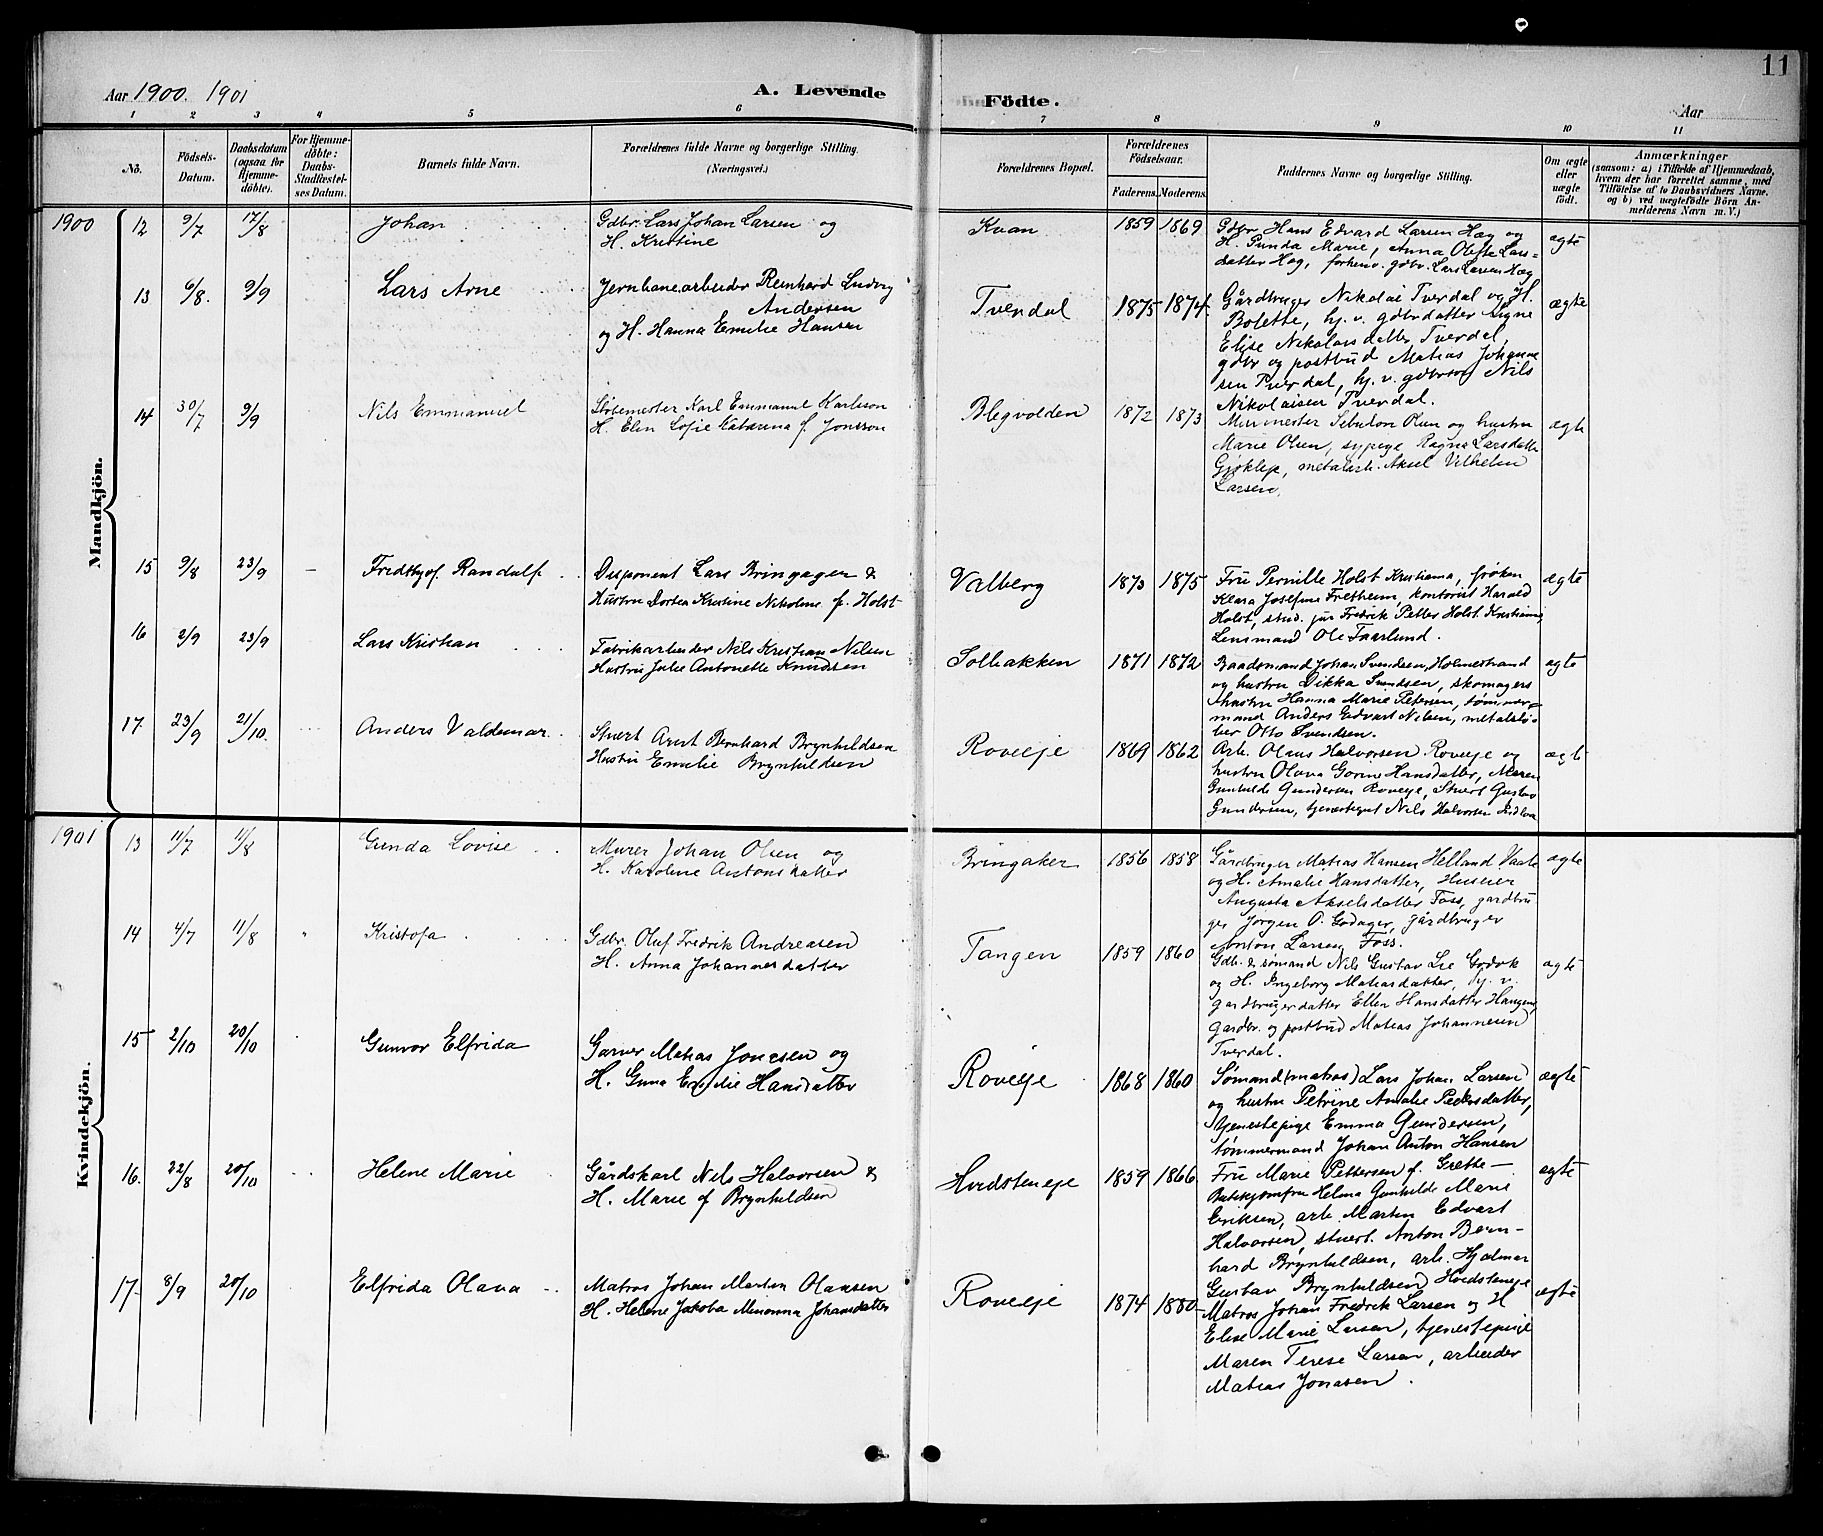 11
Aar 1900. 1901
A. Levende
Födte.
Aar
1 2 3 4 5 6 7 8 9 10 11
No.
Födsels-
Datum.
Daabsdatum
(ogsaa for
Hjemme-
döbte).
For Hjemme-
döbte:
Daabs-
Stadfæstel-
ses Datum.
Barnets fulde Navn.
Forældrenes fulde Navne og borgerlige Stilling.
(Næringsvei.)
Forældrenes Bopæl.
Forældrenes
Födselsaar.
Faderens. Moderens.
Faddernes Navne og borgerlige Stilling.
Om ægte
eller
uægte
født.
Anmærkninger
(saasom: a) i Tilfælde af Hjemmedaab,
hvem der har forrettet samme, med
Tilföielse af to Daabsvidners Navne.
og b) ved uegtefödte Börn An-
melderens Navn m. V.)
1900
Mandkjön.
12 9/7 17/8 Johan
Gdbr. Lars Johan Larsen og
H. Kristine
Kvan 1859 1869
Gdbr Hans Edvard Larsen Hæg og
H. Gunda Marie, Anna Olefte Lars-
datter Hag, forhenv. gdbr. Lars Larsen Hæg
ægte
13 6/8. 9/9 Lars Arne
Jernbanearbeider Reinhard Ludvig
Andersen
og H. Hanna Emilie Hansen
Tverdal 1875 1874
Gårdbruger Nikolai Tverdal og H.
Bolette, hj. v. gdbrdatter Signe
Elise Nikolaisdatter Tverdal,
gdbr og postbud Matias Johanne
sen Tverdal, hj. v. gdbrsøn Nils
Nikolaisen Tverdal.
ægte
14 30/7 9/9 Nils Emmanuel
Støbemester Karl Emmanuel Karlsson
H. Elin Sofie Katarina f. Jonsson
Blegvolden 1872 1873
Murmester Olsen og hustru
Marie Olsen, sypige Ragna Larsdatter
Gjøklep, metalarb. Aksel Vilhelm
Larsen.
ægte
15 9/8 23/9 – Fredthjof Randulf
Disponent Lars Bringager &
Hustru Dortea Kristine Nikoline f. Holst
Valberg 1873 1875
Fru Pernille Holst Kristiania, frøken
Klara Josefine Fretheim, kontorist Harald
Holst, stud. jur Fredrik Petter Holst Kristiania
Lensmand Ole Faarlund.
ægte
16 2/9 23/9 Lars Kristian
Fabrikarbeider Nils Kristian Nilsen
Hustru Julie Antonette Knudsen
Solbakken 1871 1872
Baadsmand Johan Svendsen, Holmestrand
og hustru Dikka Svendsen, skomagers
hustru Hanna Marie Petersen, tømmer-
mand Anders Edvart Nilsen, metalstø-
ber Otto Svendsen.
ægte
17. 23/9 21/10. Anders Valdemar
Stuert Arnt Bernhard Brynhildsen
Hustru Emilie Brynhildsen
Roveeje 1869 1862
Arb. Olaus Halvorsen Roveeje og
hustru Olava Gorine Hansdatter, Maren
Gunhilde Gundersen Roveeje, Stuert Gustav
Gundersen, tjenestegut Nils Halvorsen
ægte
1901
Kvindekjön.
13 11/7 11/8 Gunda Lovise
Murer Johan Olsen og
H. Karoline Antonsdatter
Bringaker 1856 1858
Gårdbruger Matias Hansen Helland Vaale
og H. Amalie Hansdatter, Huseier
Augusta Akselsdatter Foss, gårdbru
ger Jørgen O. Godager, gårdbruger
Anton Larsen Foss.
ægte
14 4/7 11/8 " Kristofa
Gdbr. Oluf Fredrik Andreasen
H. Anna Johannesdatter
Tangen 1859 1860
Gdb. & sømand Nils Gustav Lie
og H. Ingeborg Matiasdatter, hj. v.
gårdbrugerdatter Ellen Hansdatter Haugen,
gardbr. og postbud Matias Johannesen
Tverdal.
ægte
15 2/10 20/10 Gunvor Elfrida
Garver Matias Jonesen og
H. Gina Emilie Hansdatter
Roveeje 1868 1860
Sømand (matros) Lars Johan Larsen
og hustru Petrine Amalie Pedersdatter,
tjenestepige Emma Gundersen,
tømmermand Johan Anton Hansen
ægte
16. 22/8 20/10 Helene Marie
Gårdskarl Nils Halvorsen &
H. Marie f Brynhildsen
Hvidsteneje 1859 1866
Fru Marie Pettersen f. Grette –
Butikjomfru Helma Gunhilde Marie
Eriksen, arb. Martin Edvart
Halvorsen, stuert. Anton Bern-
hard Brynhildsen, arb. Hjalmar
Gustav Brynhildsen Hvidsteneje
ægte
17. 8/9 20/10 Elfrida Olava
Matros Johan Martin Olausen
H. Helene Jakoba Minonna Johansdatter
Roveeje 1874 1880
Matros Johan Fredrik Larsen og H
Elise Marie Larsen, tjenestepige
Maren Terese Larsen, arbeider
Matias Jonasen.
ægte